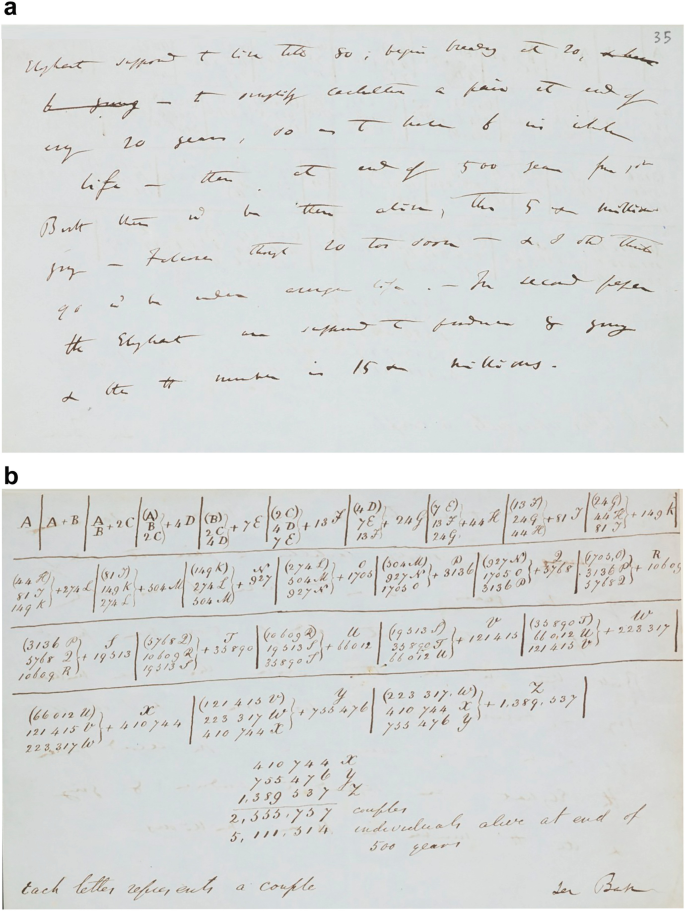 a
35
Elephant supposed to live till 80; begin breeding at 20,
6 young — to simplify a pair at end of
every 20 years, so as to have 6 in
life — then at end of 500 years
there wd be then alive, 5 millions
Falconer thought 20 too soon — & I shd think
90 wd be under average life. — In second paper
the Elephant are supposed to produce 8 young
& then the number is 15 millions.
b
A | A + B | A B + 2C | (A) B 2C } + 4D | (B) 2C 4D } + 7E | (2C) 4D 7E } + 13F | (4D) 7E 13F } + 24G | (7E) 13F 24G } + 44H | (13F) 24G 44H } + 81I | (24G) 44H 81I } + 149K |
(44H) 81I 149K } + 274L | (81I) 149K 274L } + 504M | (149K) 274L 504M } + N 927 | (274L) 504M 927N } + O 1705 | (504M) 927N 1705O } + P 3136 | (927N) 1705O 3136P } + Q 5768 | (1705.O) 3136P 5768Q } + R 10609
(3136P) 5768Q 10609R } + S 19513 | (5768Q) 10609R 19513S } + T 35890 | (10609R) 19513S 35890T } + U 66012 | (19513S) 35890T 66012U } + V 121415 | (35890T) 66012U 121415V } + W 223317 |
(66012U) 121415V 223317W } + X 410744 | (121415V) 223317W 410744X } + Y 755476 | (223317.W) 410744 X 755476 Y } + Z 1.389.537 |
410744 X
755476 Y
1.389537 Z
2,555.757 couples
5,111.514 individuals alive at end of
500 years
Each letter represents a couple